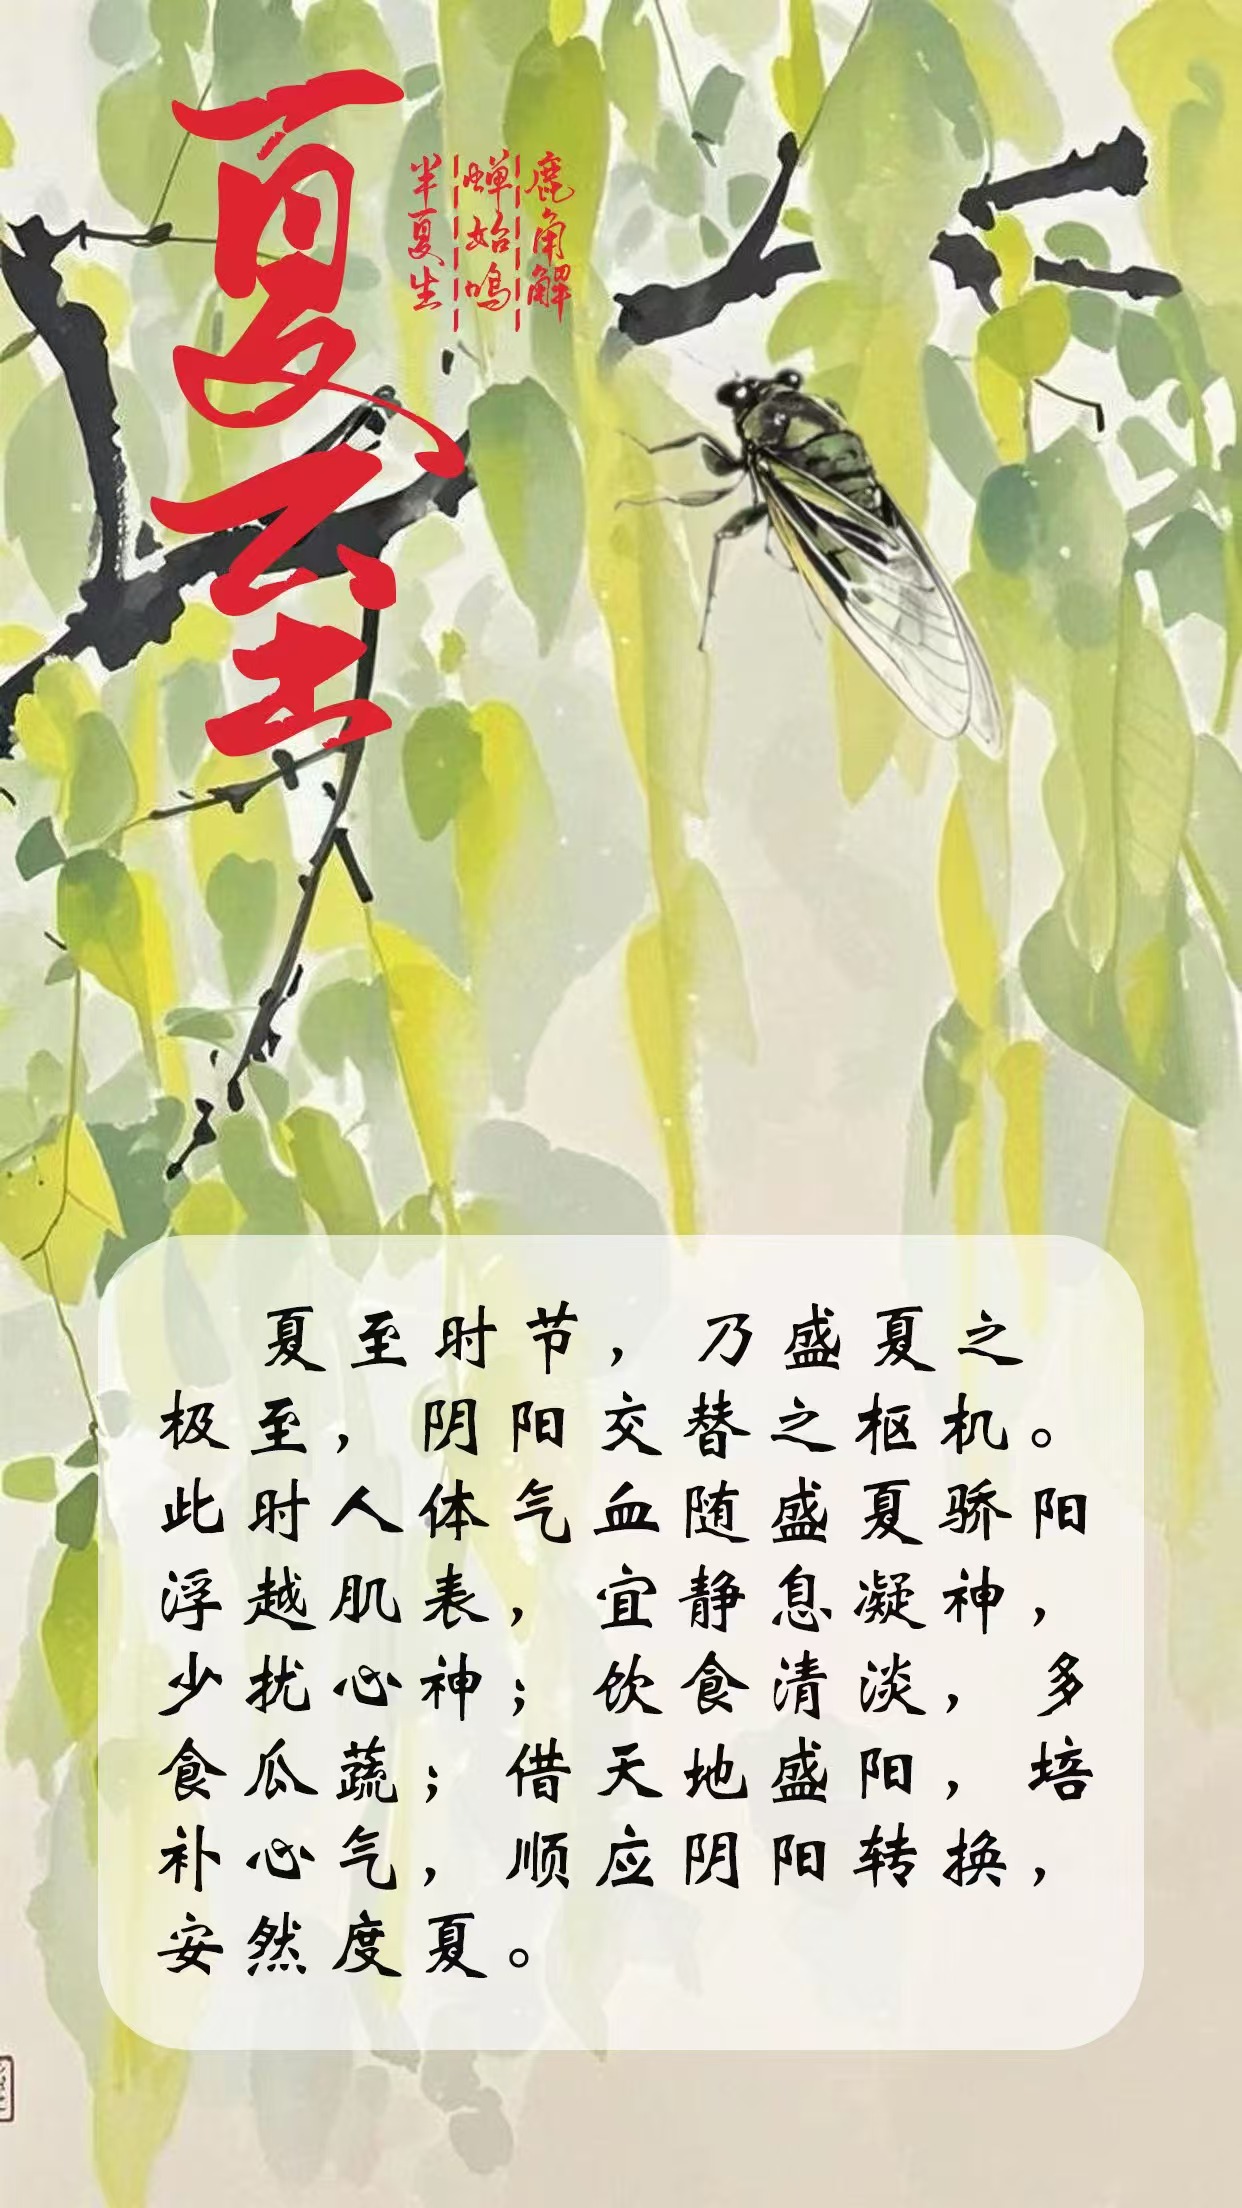 夏至
鹿角解
蝉始鸣
半夏生
夏至时节，乃盛夏之
极至，阴阳交替之枢机。
此时人体气血随盛夏骄阳
浮越肌表，宜静息凝神，
少扰心神；饮食清淡，多
食瓜蔬；借天地盛阳，培
补心气，顺应阴阳转换，
安然度夏。